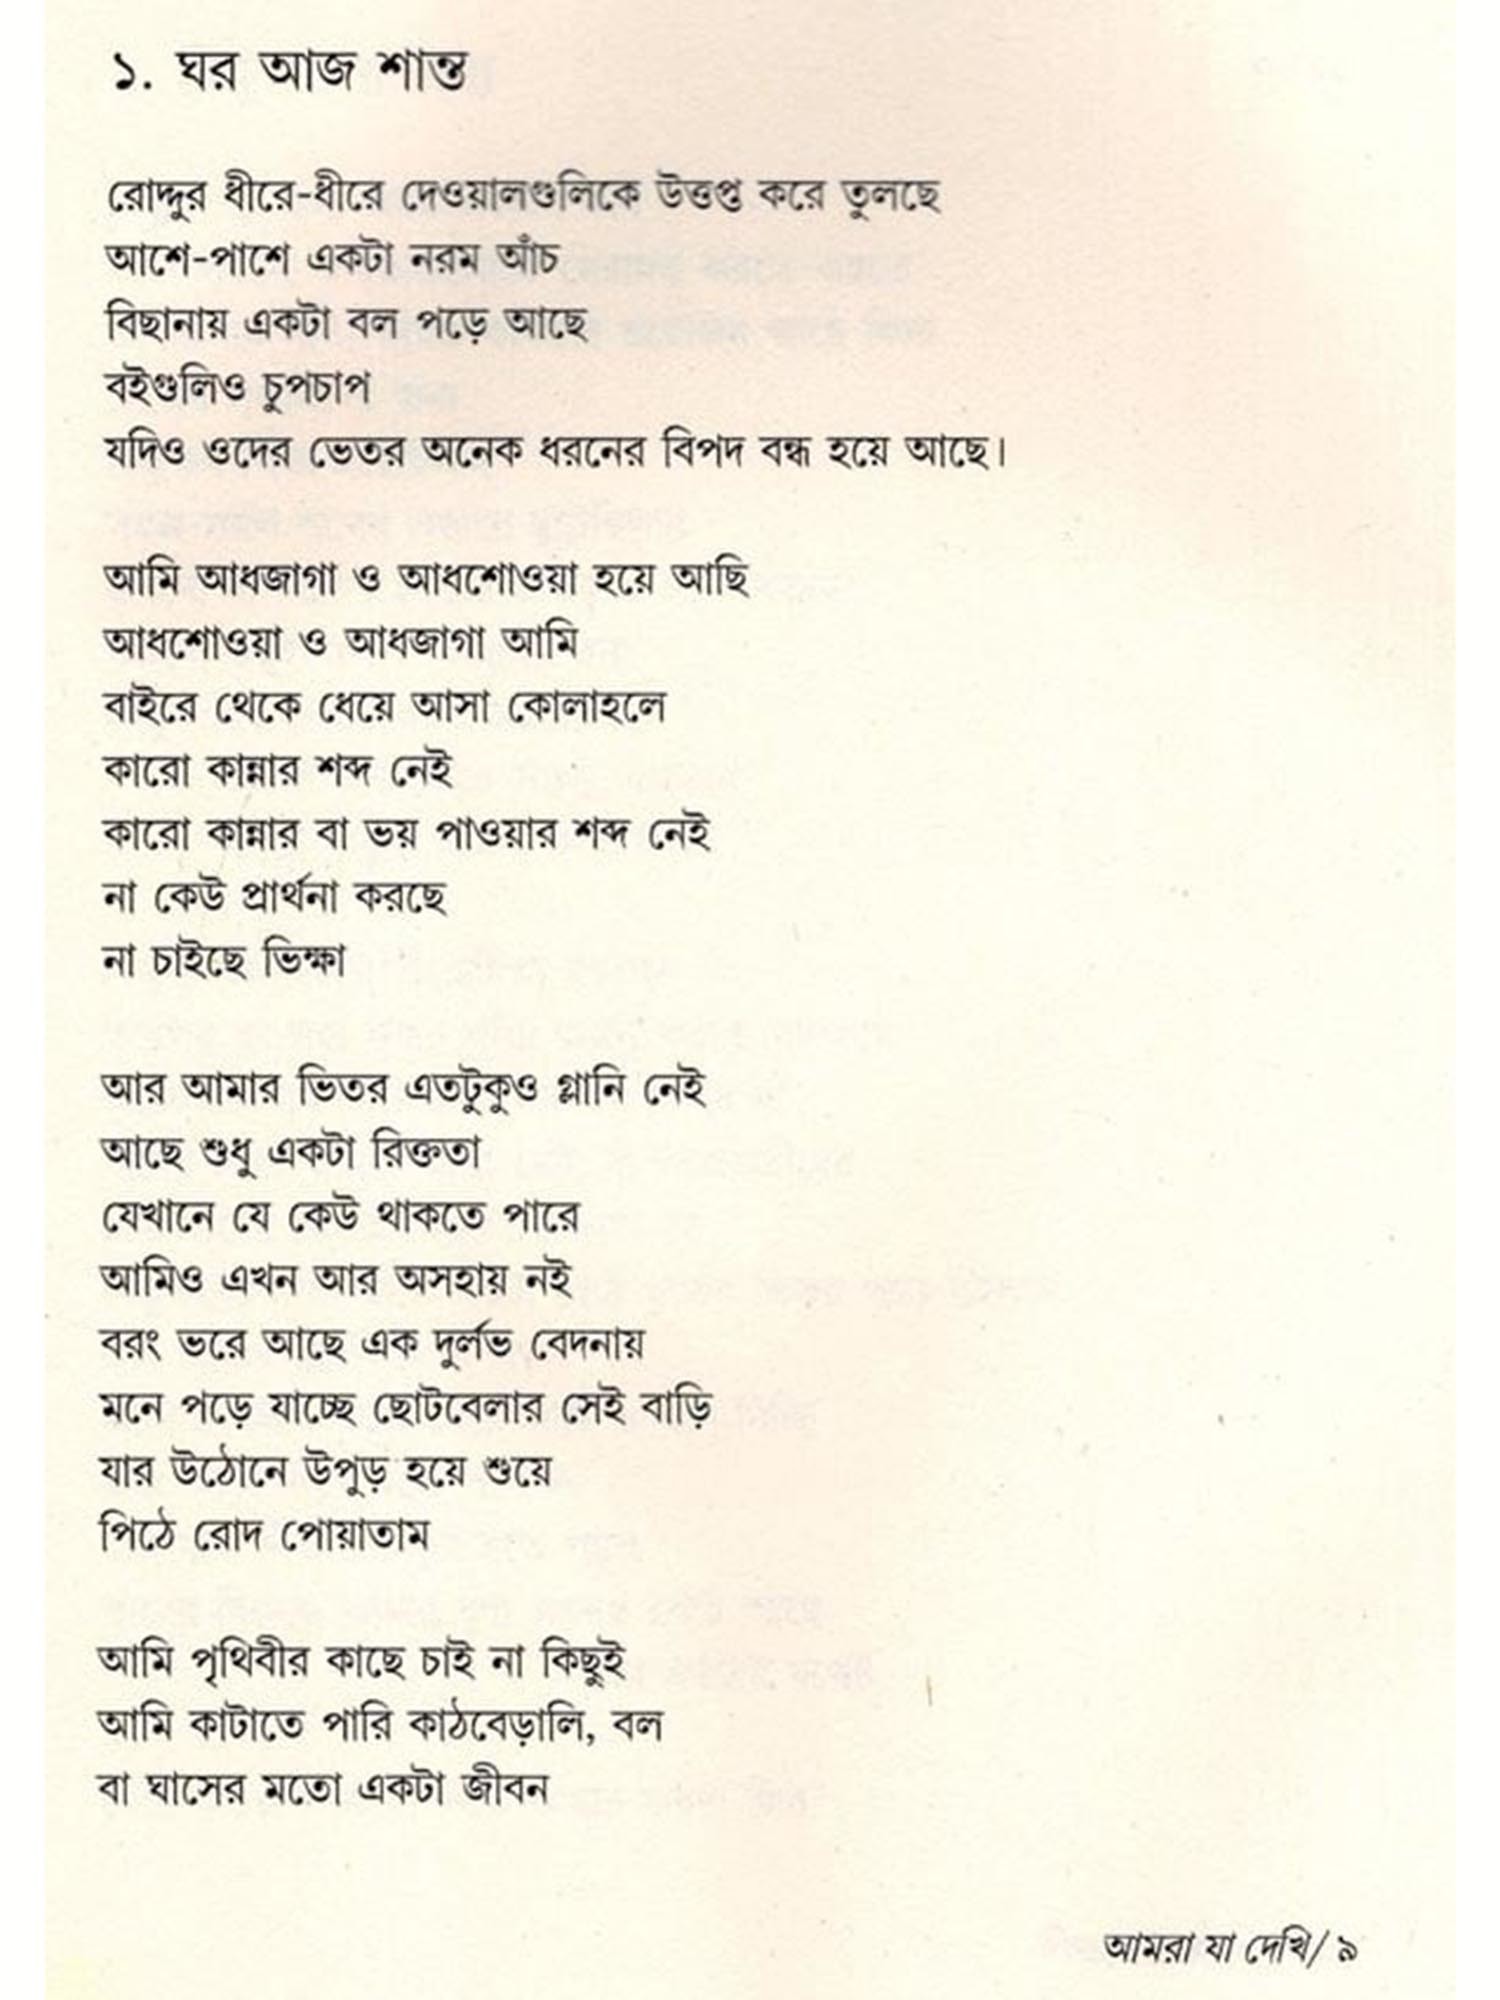 ১. ঘর আজ শান্ত
রোদ্দুর ধীরে-ধীরে দেওয়ালগুলিকে উত্তপ্ত করে তুলছে
আশে-পাশে একটা নরম আঁচ
বিছানায় একটা বল পড়ে আছে
বইগুলিও চুপচাপ
যদিও ওদের ভেতর অনেক ধরনের বিপদ বন্ধ হয়ে আছে।
আমি আধজাগা ও আধশোওয়া হয়ে আছি
আধশোওয়া ও আধজাগা আমি
বাইরে থেকে ধেয়ে আসা কোলাহলে
কারো কান্নার শব্দ নেই
কারো কান্নার বা ভয় পাওয়ার শব্দ নেই
না কেউ প্রার্থনা করছে
না চাইছে ভিক্ষা
আর আমার ভিতর এতটুকুও গ্লানি নেই
আছে শুধু একটা রিক্ততা
যেখানে যে কেউ থাকতে পারে
আমিও এখন আর অসহায় নই
বরং ভরে আছে এক দুর্লভ বেদনায়
মনে পড়ে যাচ্ছে ছোটবেলার সেই বাড়ি
যার উঠোনে উপুড় হয়ে শুয়ে
পিঠে রোদ পোয়াতাম
আমি পৃথিবীর কাছে চাই না কিছুই
আমি কাটাতে পারি কাঠবেড়ালি, বল
বা ঘাসের মতো একটা জীবন
আমরা যা দেখি/ ৯